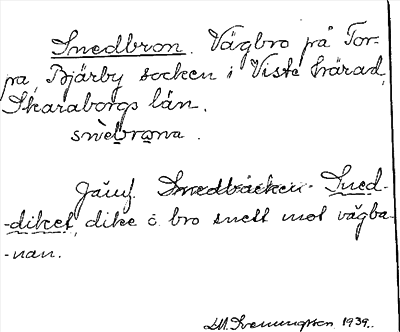 Snedbron. Vägbro på Tor-
pa, Bjärby socken i Viste härad,
Skaraborgs län.
snèbrωna.
Jämf. Snedbäcken. Sned-
-diket, dike o. bro snett mot vägba-
-nan.
1939.